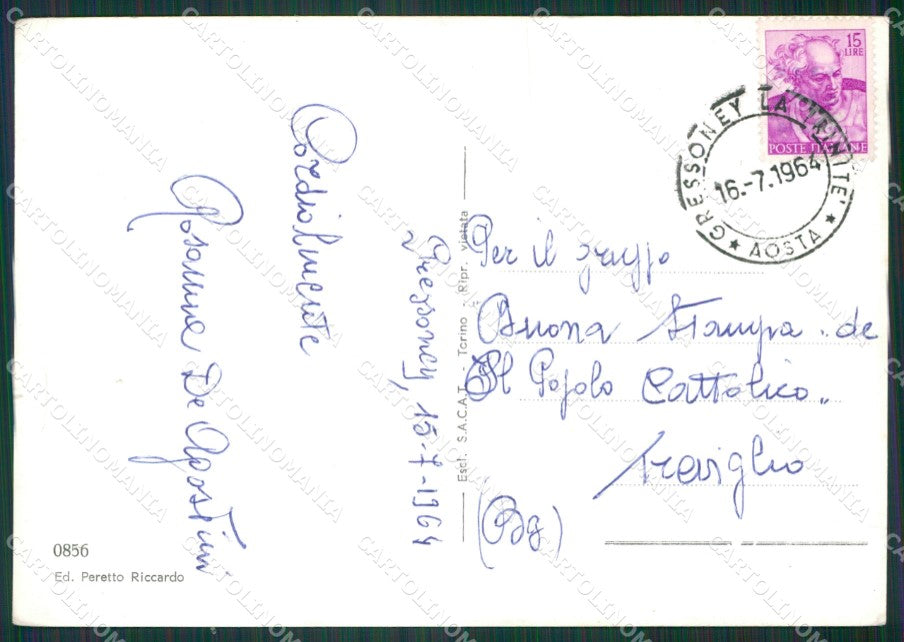 15
LIRE
POSTE ITALIANE
GRESSONEY LA TRINITE'
16.-7.1964
★ AOSTA ★
Cordialmente
Rosanna De Agostini
Gressoney, 15-7-1964
Escl. S.A.C.A.T. Torino - Ripr. vietata
Per il gruppo
Buona Stampa de
"Il Popolo Cattolico"
Treviglio
(Bg)
0856
Ed. Peretto Riccardo
CARTOLINOMANIA